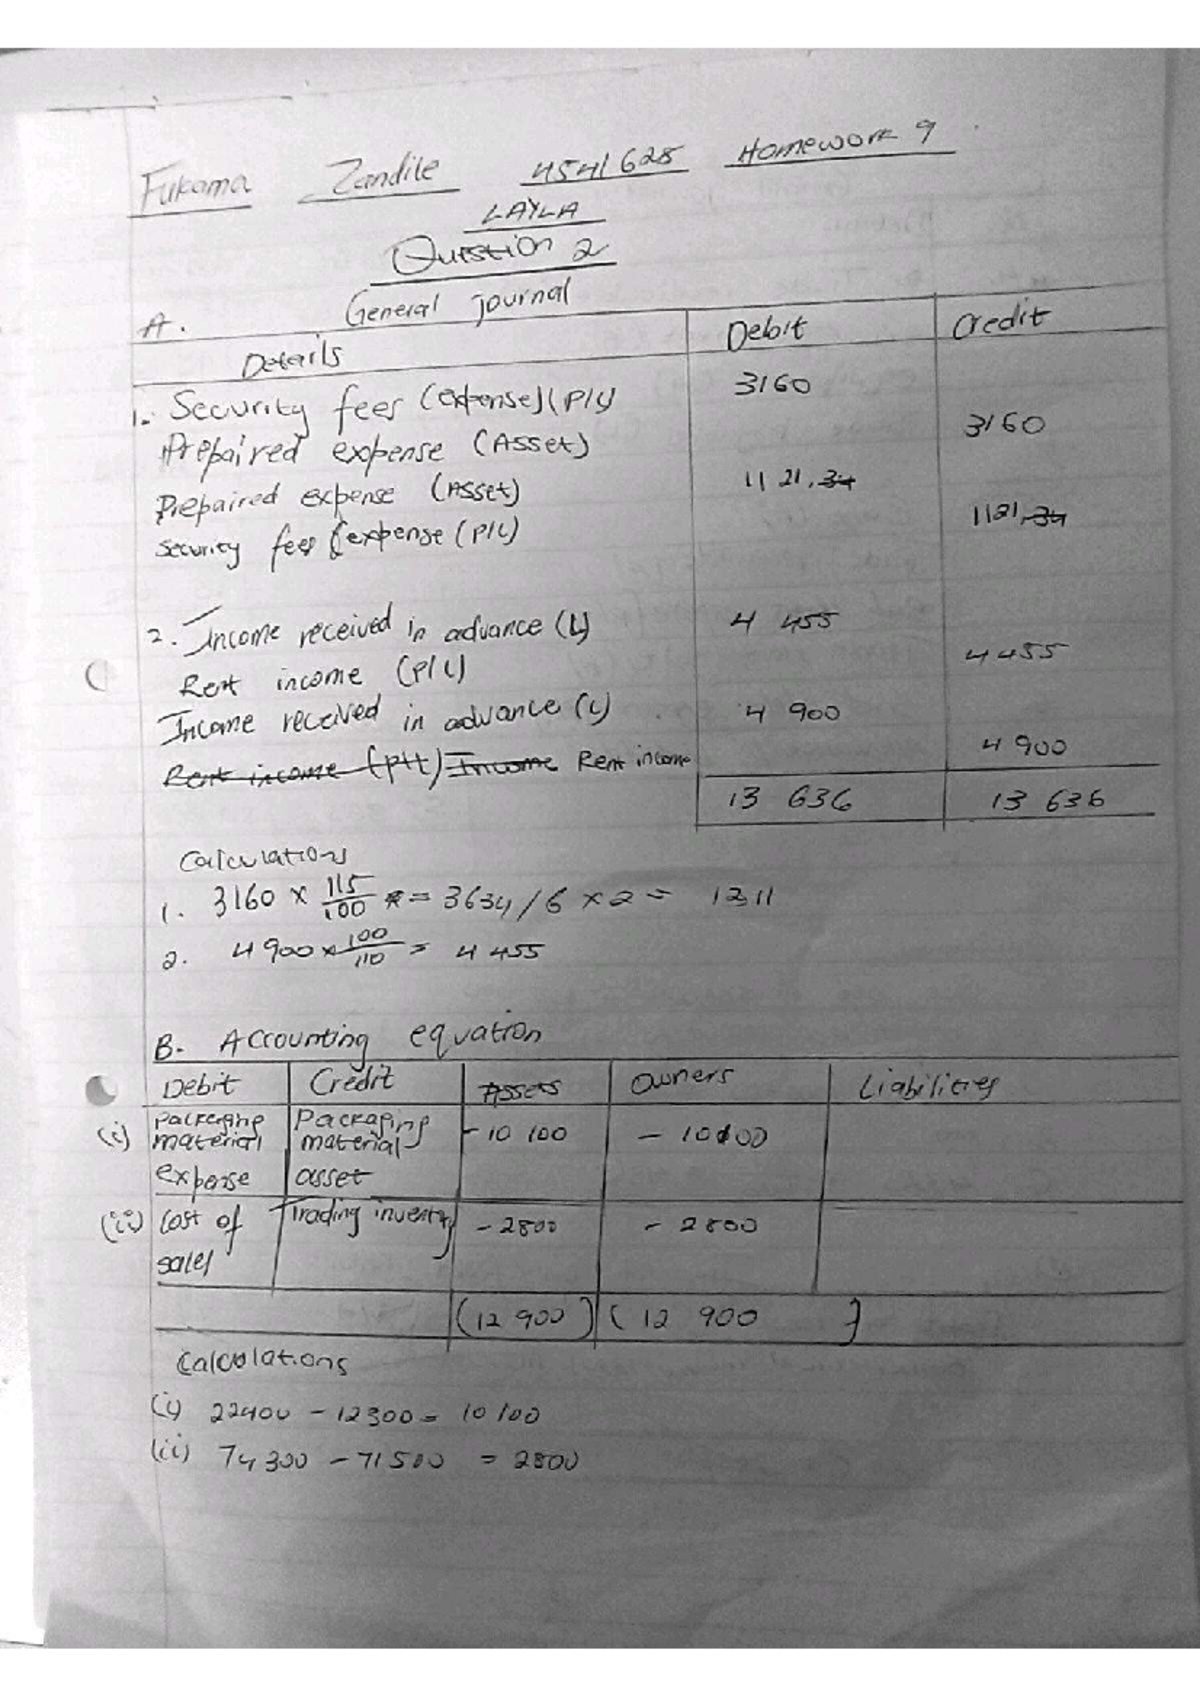 Fukama Zandile 4541628 Homework 9
LAYLA
Question 2
A. General journal
Details Debit Credit
1. Security fees (expense) (P/L) 3160
Prepaired expense (Asset) 3160
Prepaired expense (Asset) 1121,34
Security fees (expense (P/L) 1121,34
2. Income received in advance (L) 4 455
Rent income (P/L) 4455
Income received in advance (L) 4 900
Rent income (P/L) Income Rent income 4 900
13 636 13 636
Calculations
1. 3160 x 115/100 = 3634/6 x 2 = 1211
2. 4 900 x 100/110 = 4 455
B. Accounting equation
Debit Credit Assets Owners Liabilities
(i) Packaging material expense Packaging material asset - 10 100 - 10100
(ii) Cost of sales Trading inventry - 2800 - 2800
(12 900) (12 900)
Calculations
(i) 22400 - 12300 = 10 100
(ii) 74 300 - 71500 = 2800